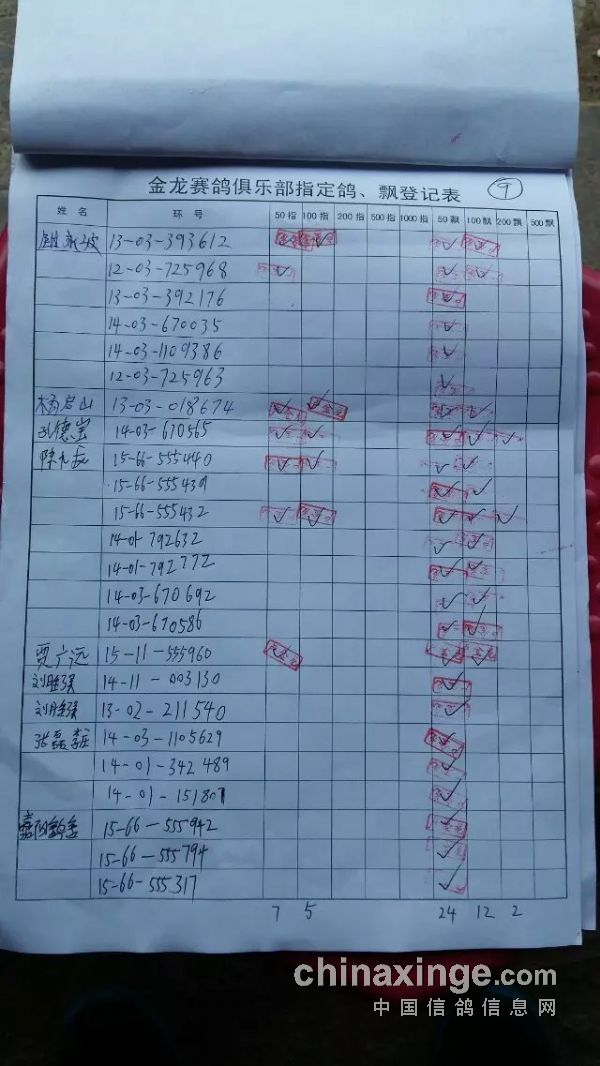 金龙赛鸽俱乐部指定鸽、飘登记表 9
姓名 环号 50指 100指 200指 500指 1000指 50飘 100飘 200飘 500飘
13-03-393612 ✓ ✓ ✓ ✓
12-03-725968 ✓ ✓ ✓
13-03-392176 ✓
14-03-670035 ✓
14-03-1109386 ✓
12-03-725963 ✓
13-03-018674 ✓ ✓ ✓ ✓
孔德宝 14-03-670565 ✓ ✓ ✓ ✓ ✓
15-66-555440 ✓ ✓ ✓ ✓
15-66-555439 ✓ ✓
15-66-555432 ✓ ✓ ✓ ✓ ✓
14-01-792632 ✓ ✓
14-01-792772 ✓ ✓
14-03-670692 ✓ ✓
14-03-670586 ✓ ✓
贾广远 15-11-555960 ✓ ✓ ✓
刘胜强 14-11-003130 ✓
刘胜强 13-02-211540 ✓
14-03-1105629 ✓
14-01-342489 ✓
14-01-151807 ✓
15-66-555942 ✓
15-66-555794 ✓
15-66-555317 ✓
7 5 24 12 2
chinaxinge.com
中国信鸽信息网